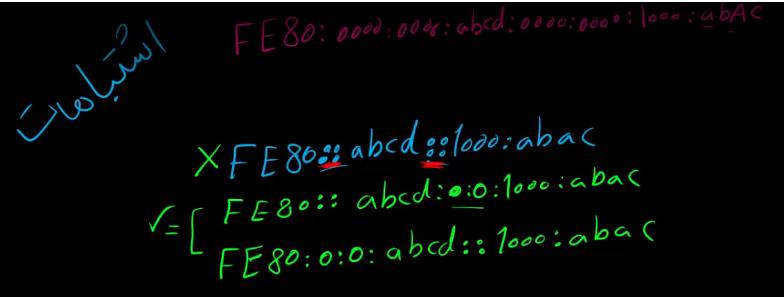 FE80:0000:0000:abcd:0000:0000:1000:abAc
اشتباهت
X FE80::abcd::1000:abac
✓=[ FE80::abcd:0:0:1000:abac
FE80:0:0:abcd::1000:abac